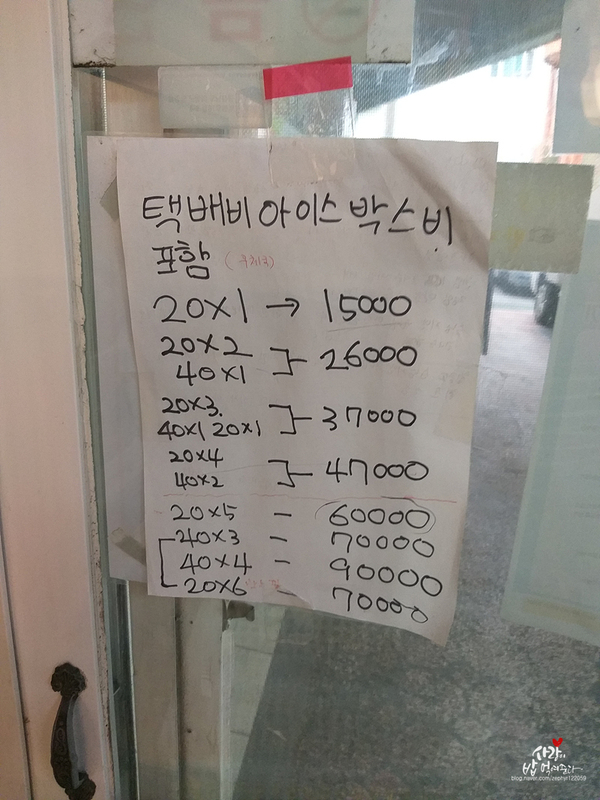 택배비 아이스박스비
포함
20×1 → 15000
20×2
40×1
26000
20×3.
40×1 20×1
37000
20×4
40×2
47000
20×5 - 60000
40×3 - 70000
40×4 - 90000
20×6 - 70000
blog.naver.com/zephir122959